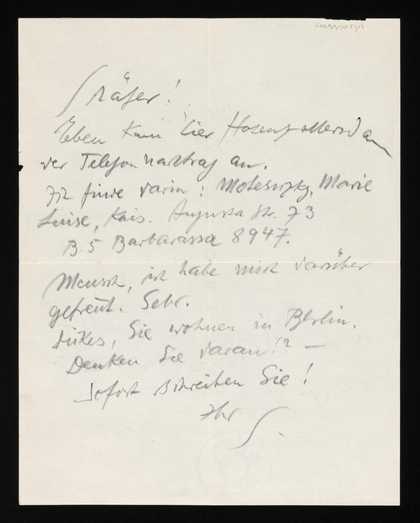 Später!
Eben kam hier Hohenzollerndam
der Telefonnachtrag an.
Ich finde darin: Molesworth, Marie
Luise, Kais. Augusta Str. 73
B 5 Barbarossa 8947.
Mensch, ich habe mich darüber
gefreut. Sehr.
Sie wohnen in Berlin.
Denken Sie daran!? —
Sofort schreiben Sie!
Ihr S.